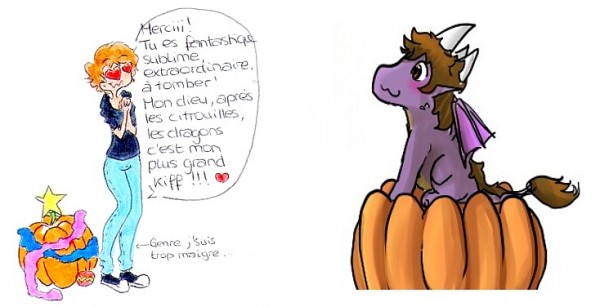 Merciii!
Tu es fantastique
sublime,
extraordinaire,
à tomber!
Mon dieu, après
les citrouilles,
les dragons
c'est mon
plus grand
kiff!!! ♥
←Genre j'suis
trop maigre...